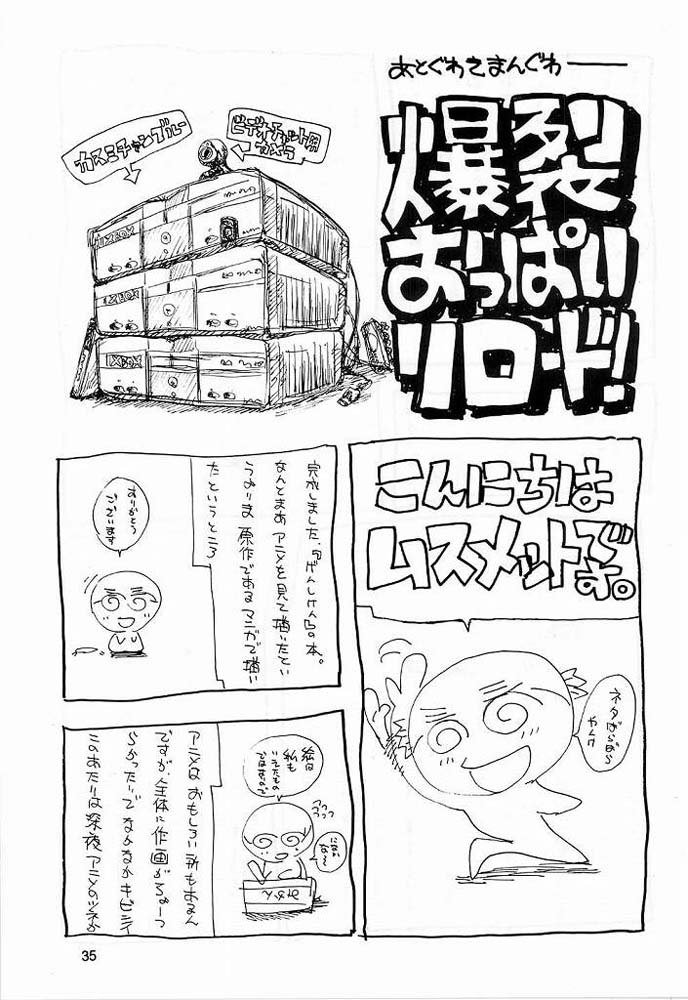 あとぐわきまんぐわ――
爆裂
おっぱい
リロード!
ビデオチャット用
カメラ
カスミチャンブルー
XBOX
XBOX
XBOX
こんにちは
ムスメットです。
ネタばらばら
やんけ
完成しました、『げんしけん』の本。
なんとまあ アニメを見て描いたとい
うよりま 原作であるマンガで描い
たというところ
ありがとう
ございます
アニメは おもしろい所もあるん
ですが、全体に作画がちょーっつ
らかったりで なかなかキビシイ
このあたりは深夜アニメのツネか
絵は
私も
いえたもの
ではないので
にない
な〜
みかん
35